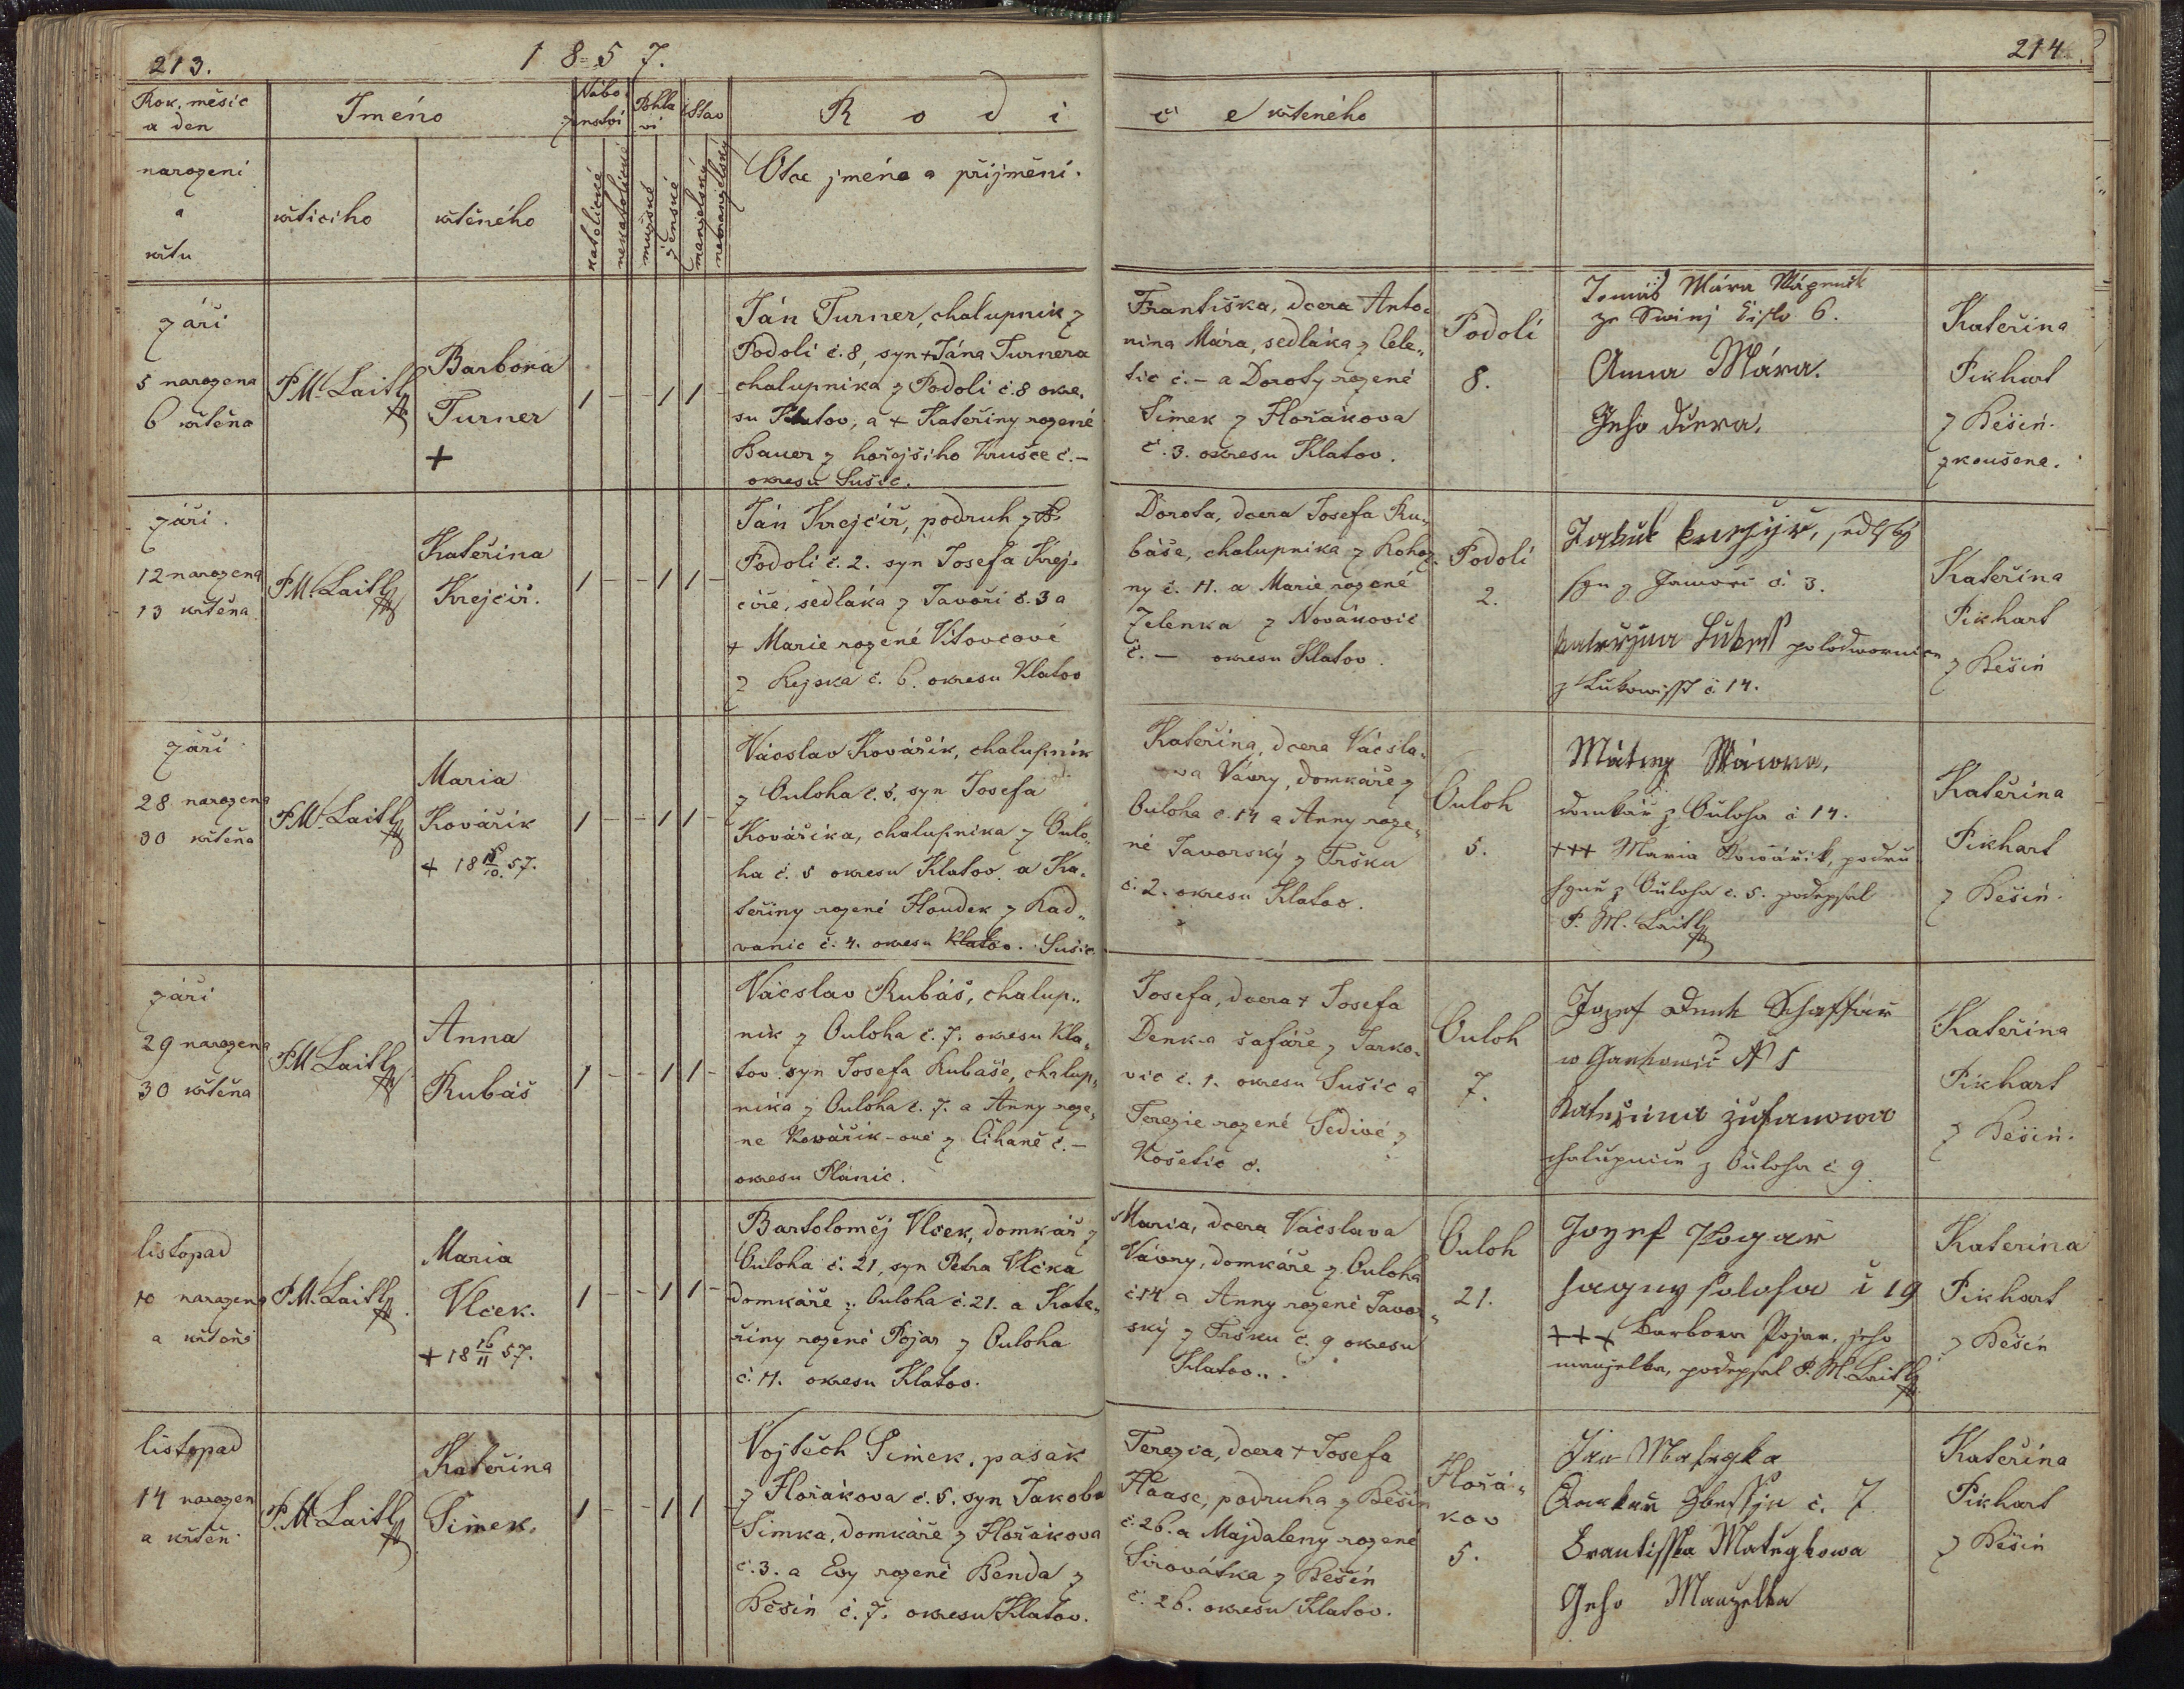 213.
1 8 5 7.
214
Rok, měsíc
a den
narození
a
křtu
Jméno
křtícího
křtěného
Nábo
ženství
katolické
nekatolické
Pohla
ví
mužské
ženské
Stav
manželský
nemanželský
R o d i
č e křteného
Otce jméno a přijmění.
září
5 narozena
6 křtěna
P. M. Laitl
Barbora
Turner
+
1 - - 1 1 -
Ján Turner, chalupník z
Podolí č. 8, syn + Jána Turnera
chalupníka z Podolí č. 8 okre,
su Klatov, a + Kateřiny rozené
Bauer z hořejšího Krušce č. –
okresu Sušic.
Františka, dcera Anto„
nina Mára, sedláka z Cele„
tic č. – a Doroty rozené
Šimek z Hořákova
č. 3. okresu Klatov.
Podolí
8.
Tomáš Mára
ze Swinj Čislo 6.
Anna Mára.
Geho dcera.
Kateřina
Pikhart
z Běšin.
zkoušena.
září
12 narozena
13 křtěna
P. M. Laitl
Kateřina
Krejčíř.
1 - - 1 1 -
Ján Krejčíř, podruh z
Podolí č. 2. syn Josefa Krej„
číře, sedláka z Javoří č. 3 a
+ Marie rozené Vítovcové
z č. 6. okresu Klatov
Dorota, dcera Josefa Ru„
báše, chalupníka z Roho„
zny č. 11. a Marie rozené
Zelenka z Novákovic
č. – okresu Klatov.
Podolí
2.
Jakub Kregčjř, sedlsky
syn z Jawoři č. 3.
Kateřjna
z č. 14.
Kateřina
Pikhart
z Běšin
září
28 narozena
30 křtěna
P. M. Laitl
Maria
Kovářík
+ 18 /10. 57.
1 - - 1 1 -
Vácslav Kovářík, chalupník
z Ouloha č. 5, syn Josefa
Kováříka, chalupníka z Oulo„
ha č. 5 okresu Klatov a Ka„
teřiny rozené Houdek z Rad„
vanic č. 4. okresu Klatov. Sušic.
Kateřina, dcera Vácsla„
va Vávry, domkáře z
Ouloha č. 14 a Anny roze„
né Javorský z Fršku
č. 2. okresu Klatov.
Ouloh
5.
Matěg Wáwra,
domkář z Oůloha č 14.
+++ Maria Kowářik, podru
hyně z Oůloha č. 5. podepsal
P. M. Laitl
Kateřina
Pikhart
z Běšin.
září
29 narozena
30 křtěna
P. M. Laitl
Anna
Rubáš
1 - - 1 1 -
Vácslav Rubáš, chalup„
ník z Ouloha č. 7. okresu Kla„
tov. syn Josefa Rubáše, chalup„
níka z Ouloha č. 7. a Anny roze„
né Kowářík-ové z Číhaně č. –
okresu Plánic.
Josefa, dcera + Josefa
Denk-a šafáře z Jarko„
vic č. 1. okresu Sušic a
Terezie rozené Šedivé z
Košetic č.
Ouloh
7.
Jozef Denk Schaffář
w N 1
Kateřina
chalupnice z Oůloha č 9.
Kateřina
Pikhart
z Běšin.
listopad
10 narozena
a křtěna
P. M. Laitl
Maria
Vlček.
+ 18 16/11 57.
1 - - 1 1 -
Bartoloměj Vlček, domkář z
Ouloha č. 21, syn Petra Vlčka
domkáře z Ouloha č. 21. a Kate„
řiny rozené Pojar z Ouloha
č. 11. okresu Klatov.
Maria, dcera Vácslava
Vávry, domkáře z Ouloha
č. 14 a Anny rozené Javor„
ský z Fršku č. 9 okresu
Klatov.
Ouloh
21.
Jozef Pogar
č 19
+++ Barbora Pojar, jeho
manželka, podepsal P. M. Laitl
Kateřina
Pikhart
z Běšin
listopad
14 narozen
a křtěn
P. M. Laitl
Kateřina
Šimek.
1 - - 1 1 -
Vojtěch Šimek, pasák
z Hořákova č. 5. syn Jakoba
Šimka, domkáře z Hořákova
č. 3. a Evy rozené Benda z
Běšin č. 7. okresu Klatov.
Terezia, dcera + Josefa
Haase, podruha z Běšin
č. 26. a Majdaleny rozené
Sirovátka z Běšin
č. 26. okresu Klatov.
Hořá„
kov
5.
Jan Mategka
č. 7
Frantisska Mategkowa
Geho Manzelka
Kateřina
Pikhart
z Běšin